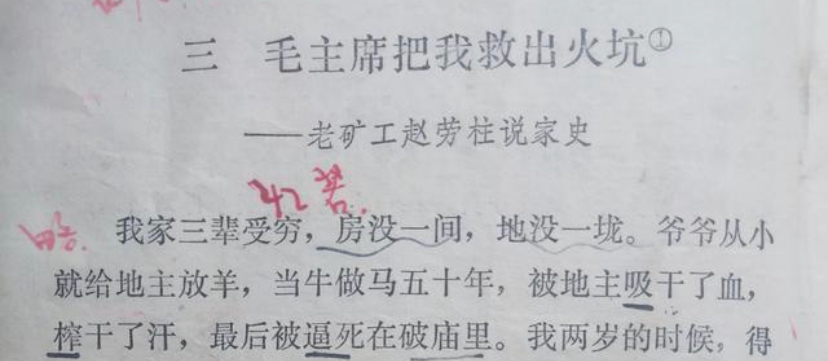 三 毛主席把我救出火坑①
——老矿工赵劳柱说家史
我家三辈受穷，房没一间，地没一垅。爷爷从小
就给地主放羊，当牛做马五十年，被地主吸干了血，
榨干了汗，最后被逼死在破庙里。我两岁的时候，得